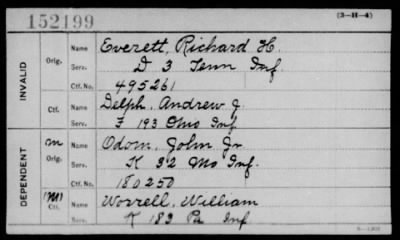 152199 (3-H-4)
INVALID
Orig. Name Everett, Richard H.
Serv. D 3 Tenn Inf.
Ctf. No. 495261
Ctf. Name Delph, Andrew J.
Serv. F 193 Ohio Inf
DEPENDENT
(M) Orig. Name Odom, John Jr.
Serv. K 32 Mo Inf.
Ctf. No. 180250
(M) Ctf. Name Worrell, William
Serv. K 183 Pa Inf